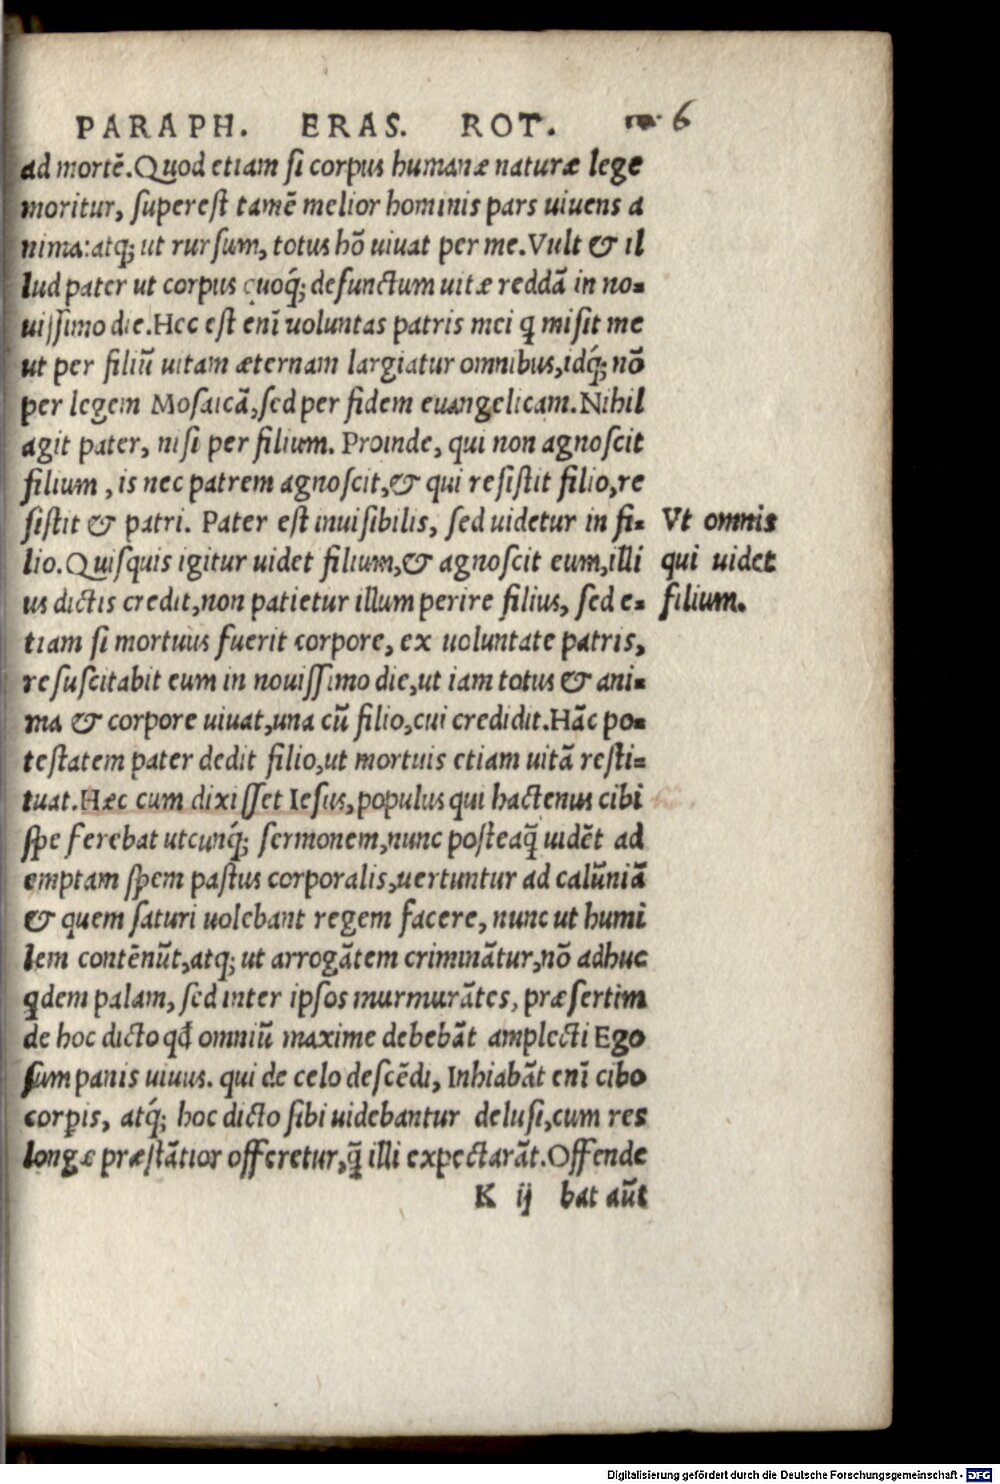 PARAPH. ERAS. ROT. 6
ad mortē. Quod etiam si corpus humanæ naturæ lege
moritur, superest tamē melior hominis pars uiuens a
nima: atq; ut rursum, totus hō uiuat per me. Vult & il
lud pater ut corpus quoq́; defunctum uitæ reddā in no-
uissimo die. Hec est enī uoluntas patris mei q misit me
ut per filiū uitam æternam largiatur omnibus, idq́; nō
per legem Mosaicā, sed per fidem euangelicam. Nihil
agit pater, nisi per filium. Proinde, qui non agnoscit
filium, is nec patrem agnoscit, & qui resistit filio, re
sistit & patri. Pater est inuisibilis, sed uidetur in fi-
lio. Quisquis igitur uidet filium, & agnoscit eum, illi
us dictis credit, non patietur illum perire filius, sed e-
tiam si mortuus fuerit corpore, ex uoluntate patris,
resuscitabit eum in nouissimo die, ut iam totus & ani-
ma & corpore uiuat, una cū filio, cui credidit. Hāc po-
testatem pater dedit filio, ut mortuis etiam uitā resti-
tuat. Hæc cum dixisset Iesus, populus qui hactenus cibi
spe ferebat utcunq́; sermonem, nunc posteaq̄ uidēt ad
emptam spem pastus corporalis, uertuntur ad calūniā
& quem saturi uolebant regem facere, nunc ut humi
lem contēnūt, atq; ut arrogātem criminātur, nō adhuc
qdem palam, sed inter ipsos murmurātes, præsertim
de hoc dicto qd̄ omniū maxime debebāt amplecti Ego
sum panis uiuus. qui de celo descēdi, Inhiabāt enī cibo
corpis, atq́; hoc dicto sibi uidebantur delusi, cum res
longæ præstātior offeretur, q̄ illi expectarāt. Offende
K ij bat aūt
Vt omnis
qui uidet
filium.
Digitalisierung gefördert durch die Deutsche Forschungsgemeinschaft - DFG